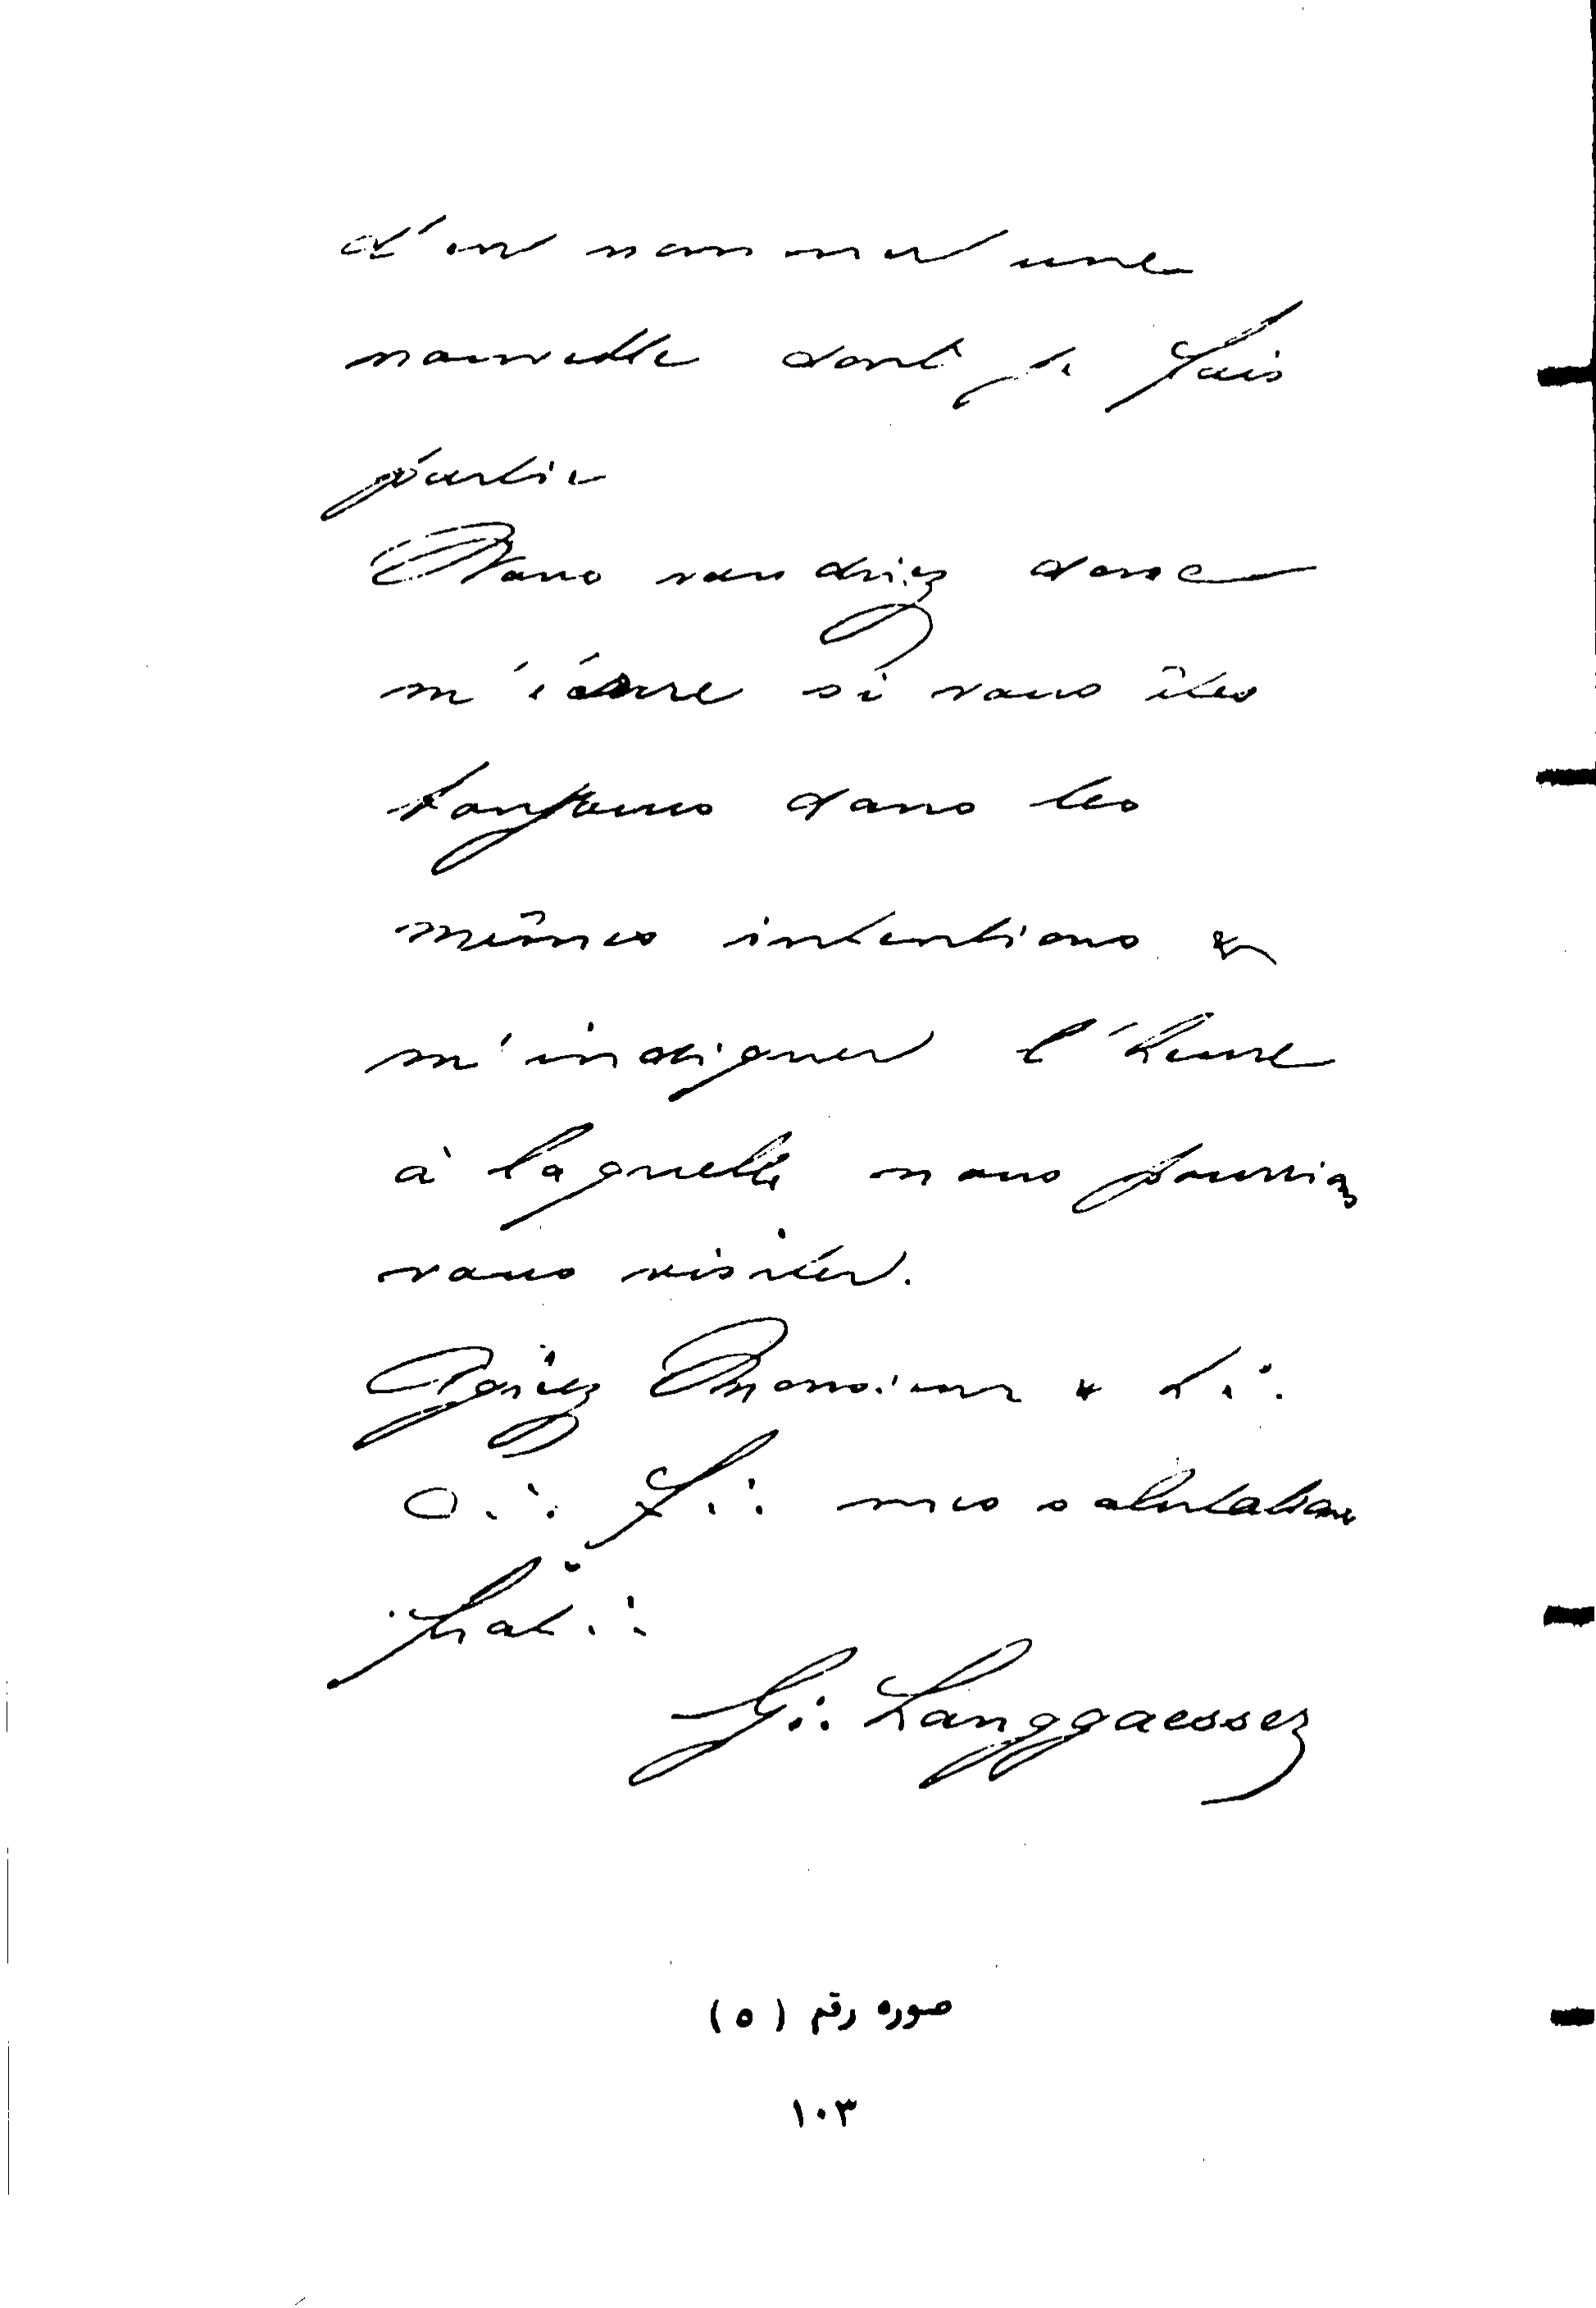 d'en nommer une
nouvelle dont je fais
partie
Vous voudriez donc
m'écrire si vous êtes
toujours dans les
mêmes intentions &
m'indiquer l'heure
à laquelle nous pourrions
vous visiter.
Agréez Monsieur & t∴
c∴ f∴ mes salutations
frat∴
G∴ Langgaesser
صوره رقم (٥)
١٠٣